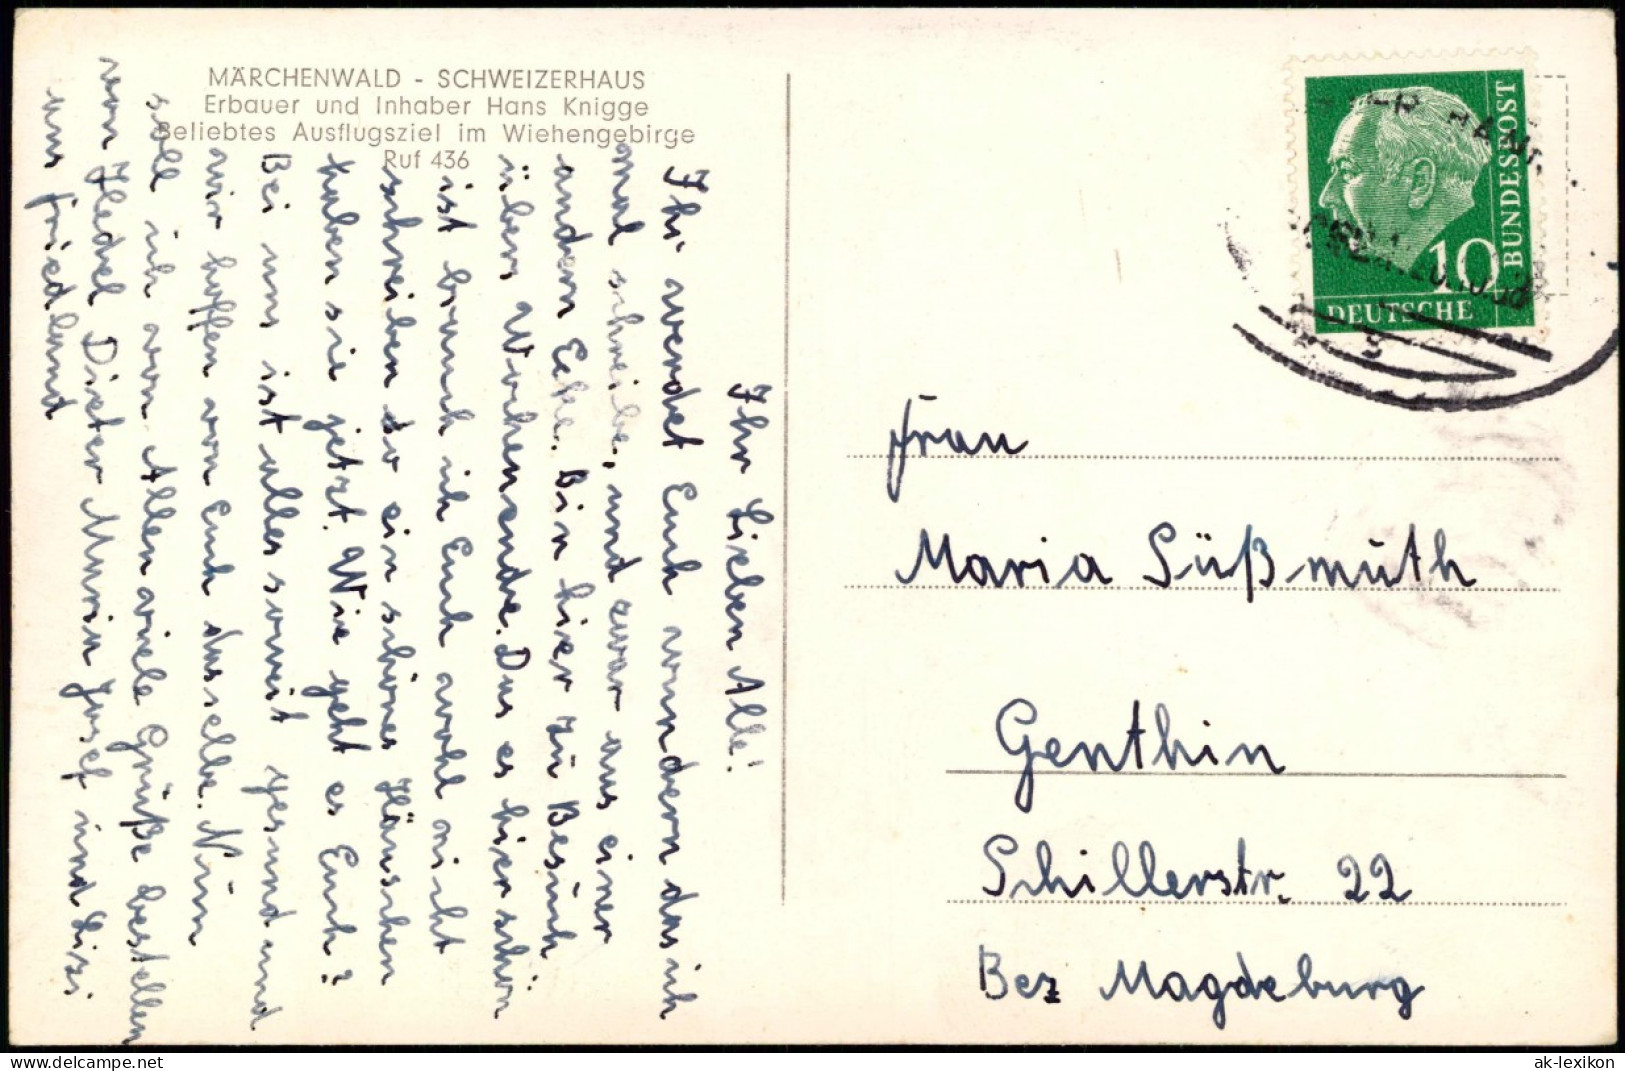 MÄRCHENWALD - SCHWEIZERHAUS
Erbauer und Inhaber Hans Knigge
Beliebtes Ausflugsziel im Wiehengebirge
Ruf 436
Ihr Lieben Alle!
Ihr werdet Euch wundern das ich
mal schreibe, und zwar aus einer
andern Ecke. Bin hier zu Besuch
übers Wochenende. Das es hier schön
ist brauch ich Euch wohl nicht
schreiben so ein schönes Häuschen
haben sie jetzt. Wie geht es Euch?
Bei uns ist alles soweit gesund und
wir hoffen von Euch dasselbe. Nun
soll ich von Allen viele Grüße bestellen
von Hedel Dieter Maria Josef und Lizi
uns Friedland
DEUTSCHE
BUNDESPOST
10
Frau
Maria Süßmuth
Genthin
Schillerstr. 22
Bez Magdeburg
delcampe.net
ak-lexikon